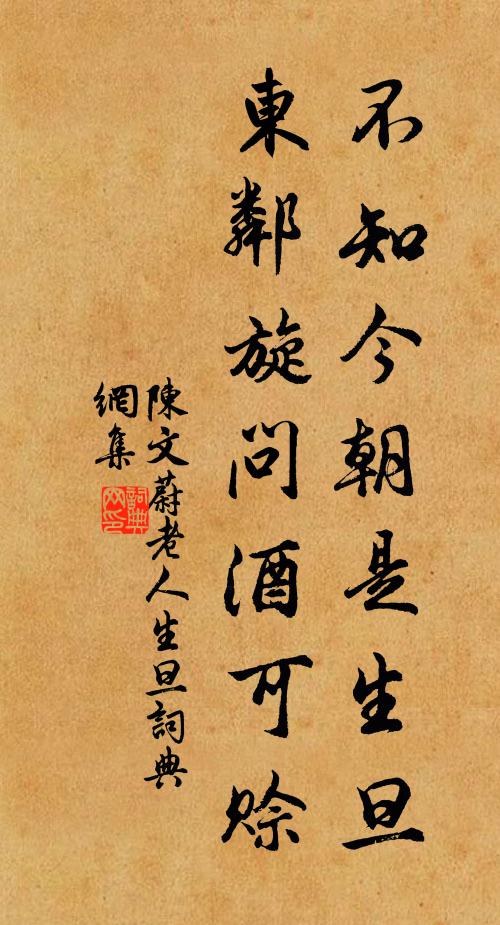 不知今朝是生旦
東鄰旋問酒可賒
陳文蔚老人生旦詞典
網集
詞典
網印